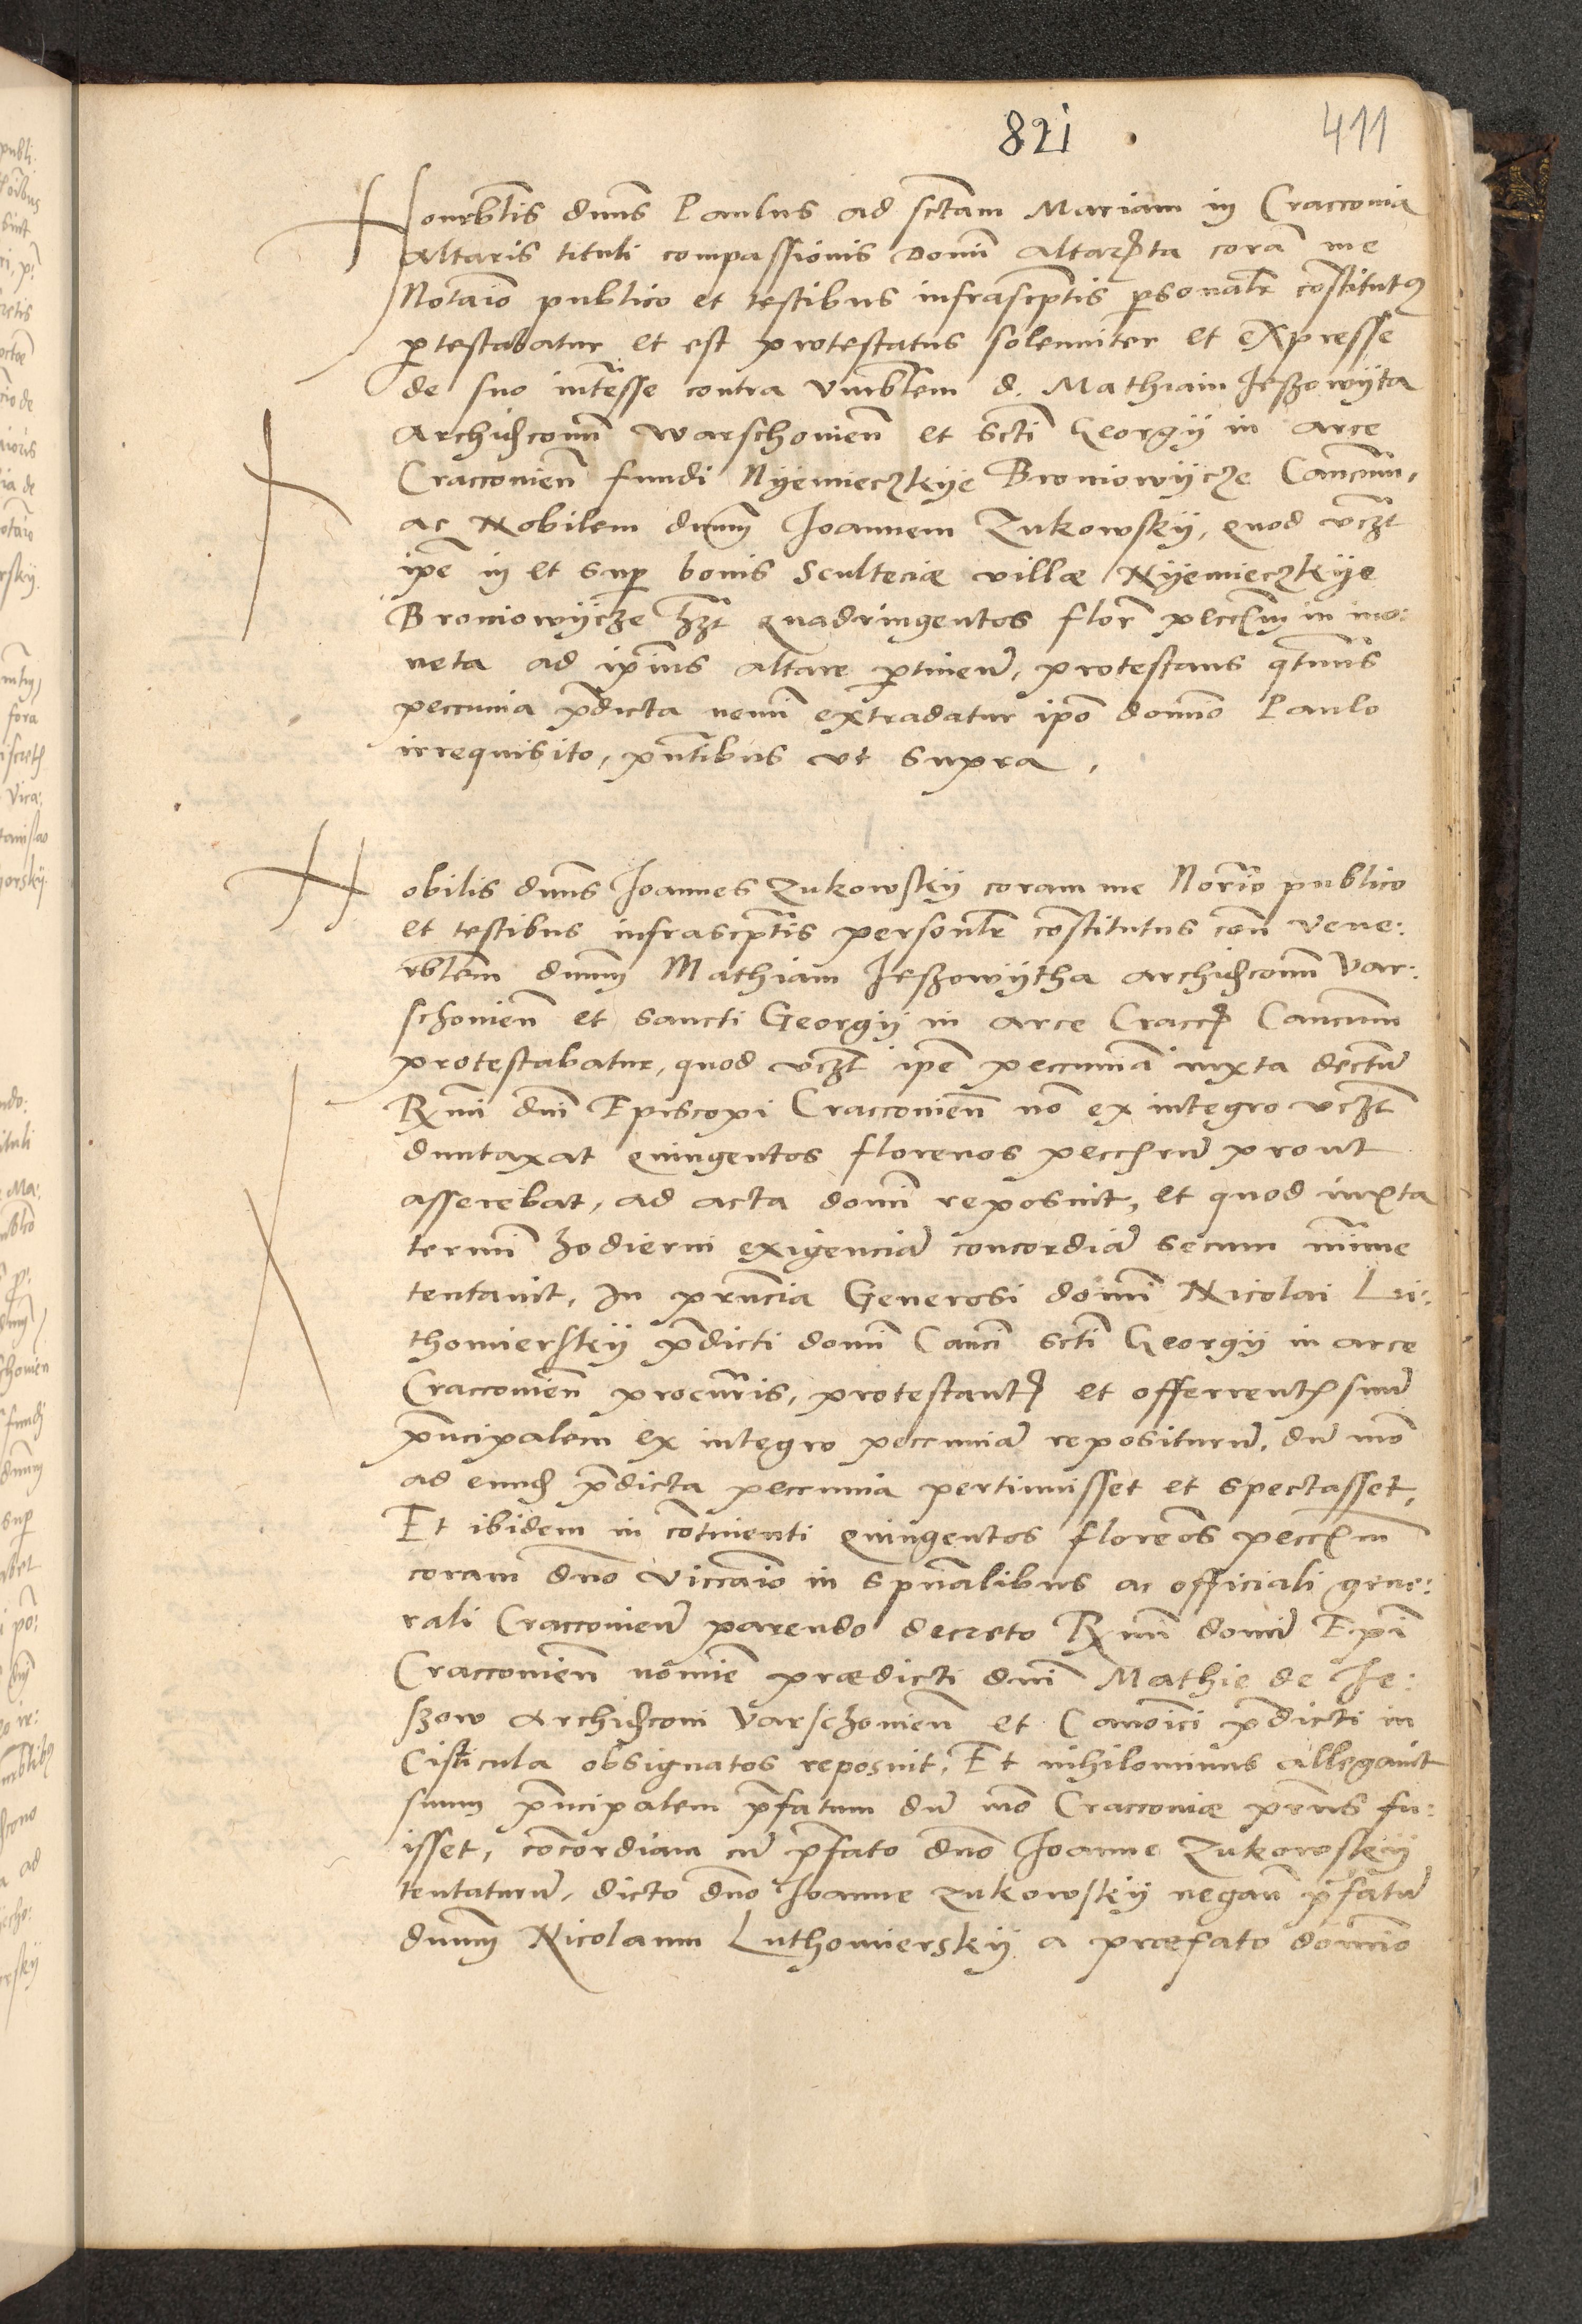 821 411
Honrblis dnns Paulus ad sctam Mariam in Cracconia
Altaris tituli compassionis Domi Altarista cora me
Notaio publico et testibus infrascptis psonalr constitutus
ptestabatur et est protestatus solenniter et expresse
de suo intesse contra Vnrblem d. Mathiam Jeszowijta
Archidconn Warschonien et Scti Georgij in Arce
Cracconien fundi Nyemieczkije Broniowijcze Canconn,
ac Nobilem dnnm Joannem Zukowskij, quod
ipe in et sup bonis Sculteciæ villæ Nyemieczkije
Broniowijcze hzt quadringentos flor in mo:
neta ad ipins altare ptinen, protestans qtnus
peccunia pdicta nemi extradatur ipo domo Paulo
irrequisito, pntibus ut supra,
Nobilis dnns Joannes Zukowskij coram me Norio publico
et testibus infrascptis personlr constitutus con vene:
rblem dnnm Mathiam Jeszowijtha archidconn Var:
schonien et sancti Georgij in arce Cracc Canconn
protestabatur, quod ipe peccunia iuxta dectum
Rmi dni Episcopi Cracconien no ex integro
duntaxat quingentos florenos prout
asserebat, ad acta domi reposuit, et quod iuxta
termi hodierni exigencia concordia secum mime
tentauit, In pruncia Generosi domi Nicolai Lu:
thomierskij pdicti domi Canci scti Georgij in arce
Cracconien procuris, protestantis et offerrentis suu
pncipalem ex integro peccunia repositurum, du mo
ad eund pdicta peccunia pertinuisset et spectasset,
Et ibidem in continenti quingentos florenos
coram dno Viccaio in spnalibus ac officiali gene:
rali Cracconien parendo decreto Rmi domi Epi
Cracconien nomie prædicti dni Mathie de Je:
szow Archidconi Varschonien et Canoici pdicti in
Cisticula obsignatos reposuit, Et nihilominus allegauit
suum pncipalem pfatum du mo Cracconiæ prnns fu:
isset, concordiam cu pfato dno Joanne Zukowskij
tentaturum, dicto dno Joanne Zukowskij negan pfatum
dnnm Nicolaum Luthomierskij a præfato domino